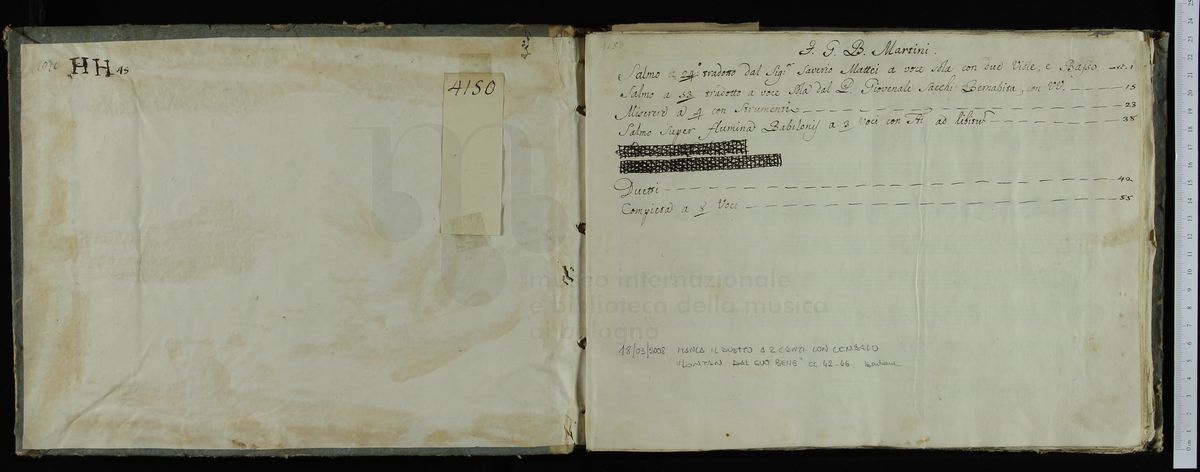 HH 45
4150
F. G. B. Martini.
Salmo a 24° tradotto dal Sigr Saverio Mattei a voce sola con due Viole, e Basso. 1
Salmo a 53 tradotto a voce sola dal P. Giovenale Sacchi Bernabita, con VV. 15
Miserere a 4 con Strumenti 23
Salmo Super flumina Babilonis a 3 Voci con Sti ad libitum 38
Duetti 42
Compieta a 8 Voci 55
museo internazionale
e biblioteca della musica
di bologna
18/03/2008 MANCA IL DUETTO A 2 CANTI CON CEMBALO
"LONTAN DAL SUO BENE" cc 42-46